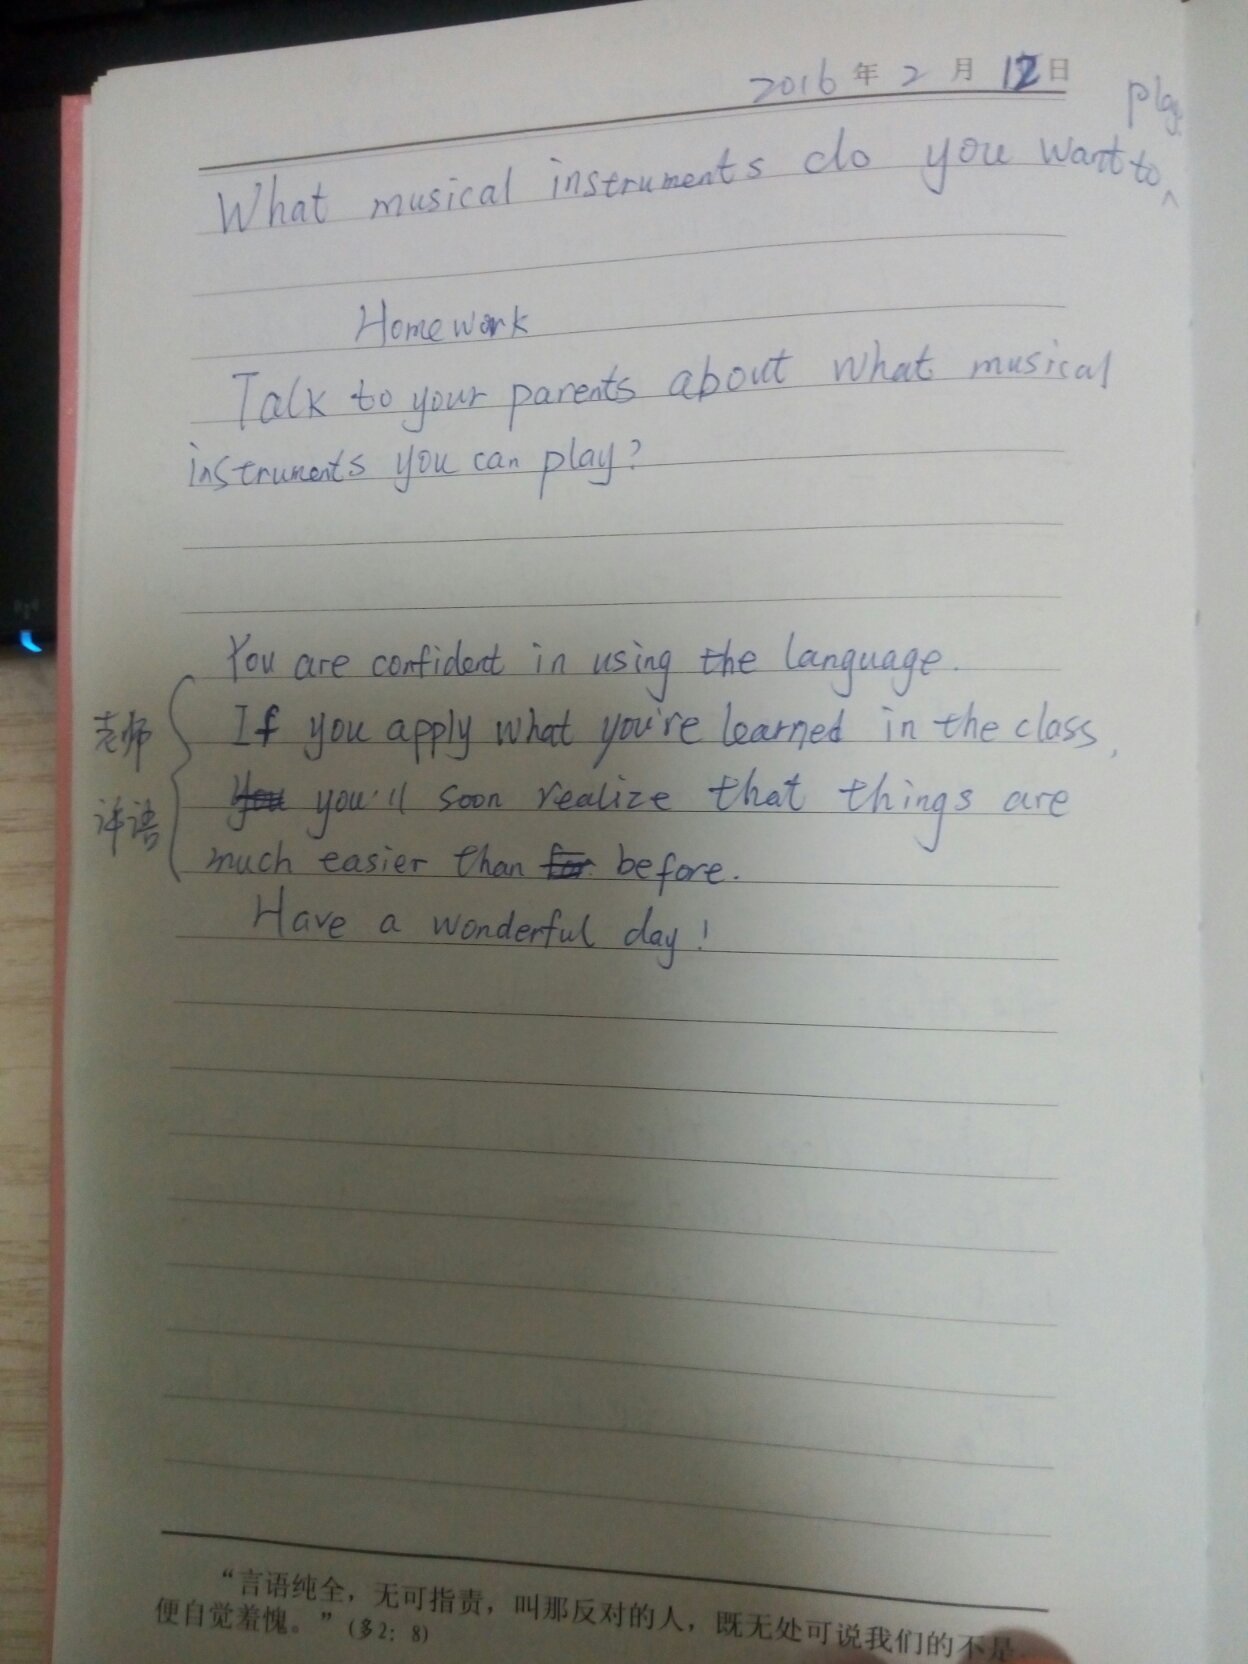 2016年2月12日
play
What musical instruments do you want to ^
Homework
Talk to your parents about what musical
instruments you can play?
You are confident in using the language.
If you apply what you're learned in the class,
老师
评语
You you'll soon realize that things are
much easier than for before.
Have a wonderful day!
“言语纯全，无可指责，叫那反对的人，既无处可说我们的不是，
便自觉羞愧。”(多2：8)